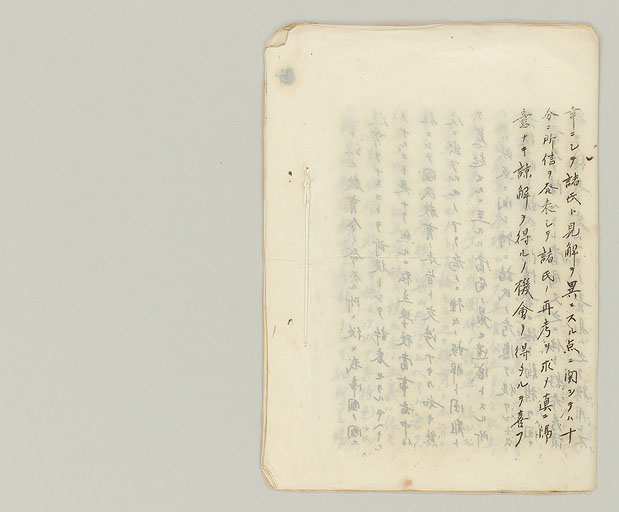 幸ニシテ諸氏ト見解ヲ異ニスル点ニ関シテハ十
分ニ所信ヲ発表シテ諸氏ノ再考ヲ求メ真ニ隔
意ナキ諒解ヲ得ルノ機會ヲ得タルヲ喜フ